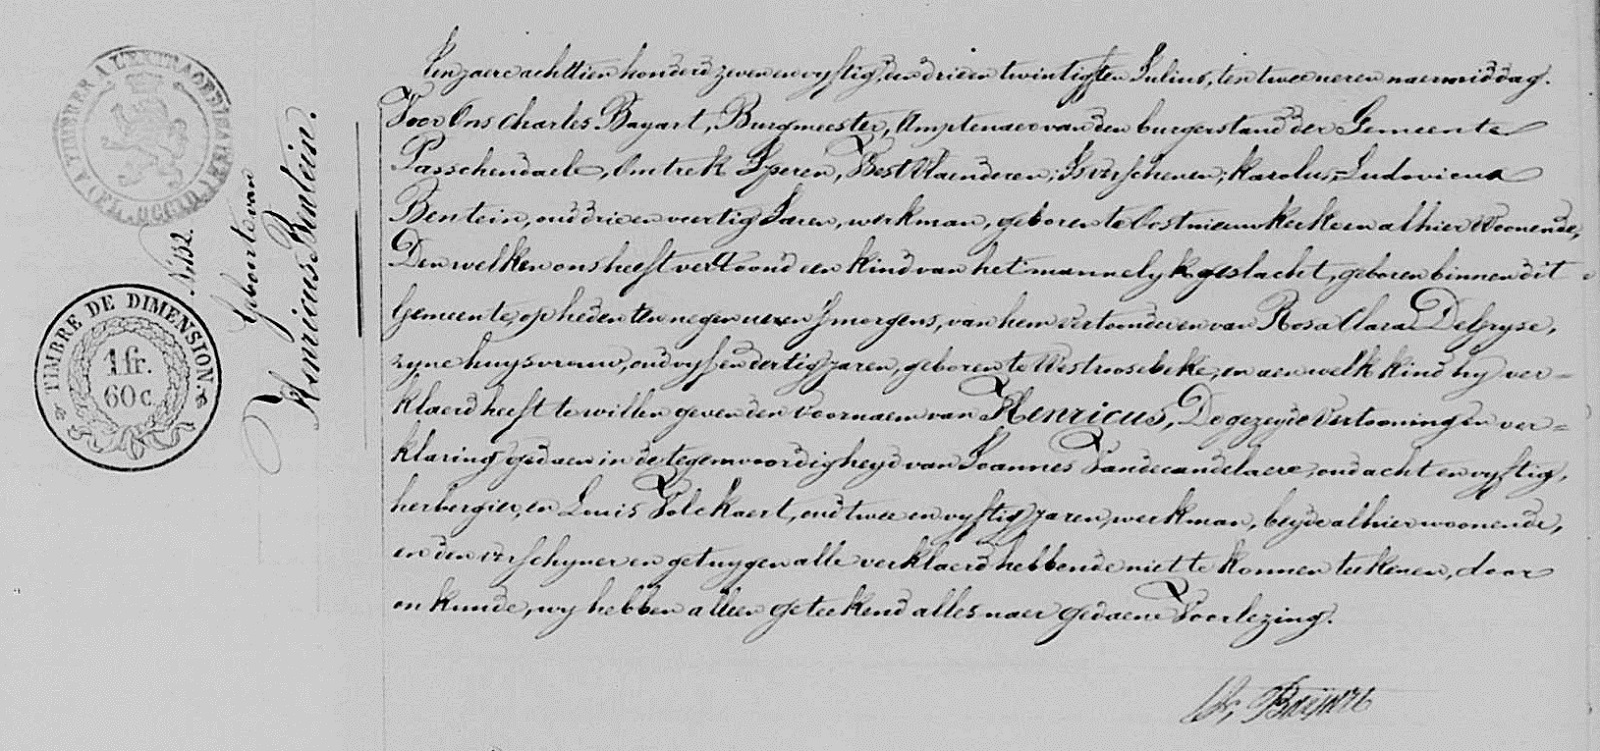 A TIMBRER A L'EXTRAORDINAIRE
(FL. OCCID.)
TIMBRE DE DIMENSION.
1 fr.
60 c.
N. 132.
Geboorte van
Henricus Bentein.
Ten jaere achttien honderd zeven en vyftig, den drie en twintigsten Julius, ten twee ueren naermiddag.
Voor Ons Charles Bayart, Burgmeester, Amptenaer van den burgerstand der Gemeente
Passchendaele, Omtrek Iperen, West Vlaenderen, Is verschenen, Karolus=Ludovicus
Bentein, oud drie en veertig Jaren, werkman, geboren te Oostnieuwkerke en alhier Woonende,
Den welken ons heeft vertoond een kind van het mannelyk geslacht, geboren binnen dit=
Gemeente, op heden ten negen ueren s'morgens, van hem vertoonder en van Rosa Clara Delfryse,
zyne huysvrouw, oud vyf en dertig jaren, geboren te Westroosebeke, en aen welk kind hy ver=
klaerd heeft te willen geven den Voornaem van Henricus, De gezeyde Vertooning en ver=
klaring gedaen in de tegenwoordigheyd van Joannes Vandecandelaere, oud acht en vyftig,
herbergier, en Louis Volckaert, oud twee en vyftig jaren, werkman, beyde alhier woonende,
en den verschyner en getuygen alle verklaerd hebbende niet te konnen teekenen, door
onkunde, wy hebben alleen geteekend alles naer gedaene Voorlezing.
Ch. Bayart